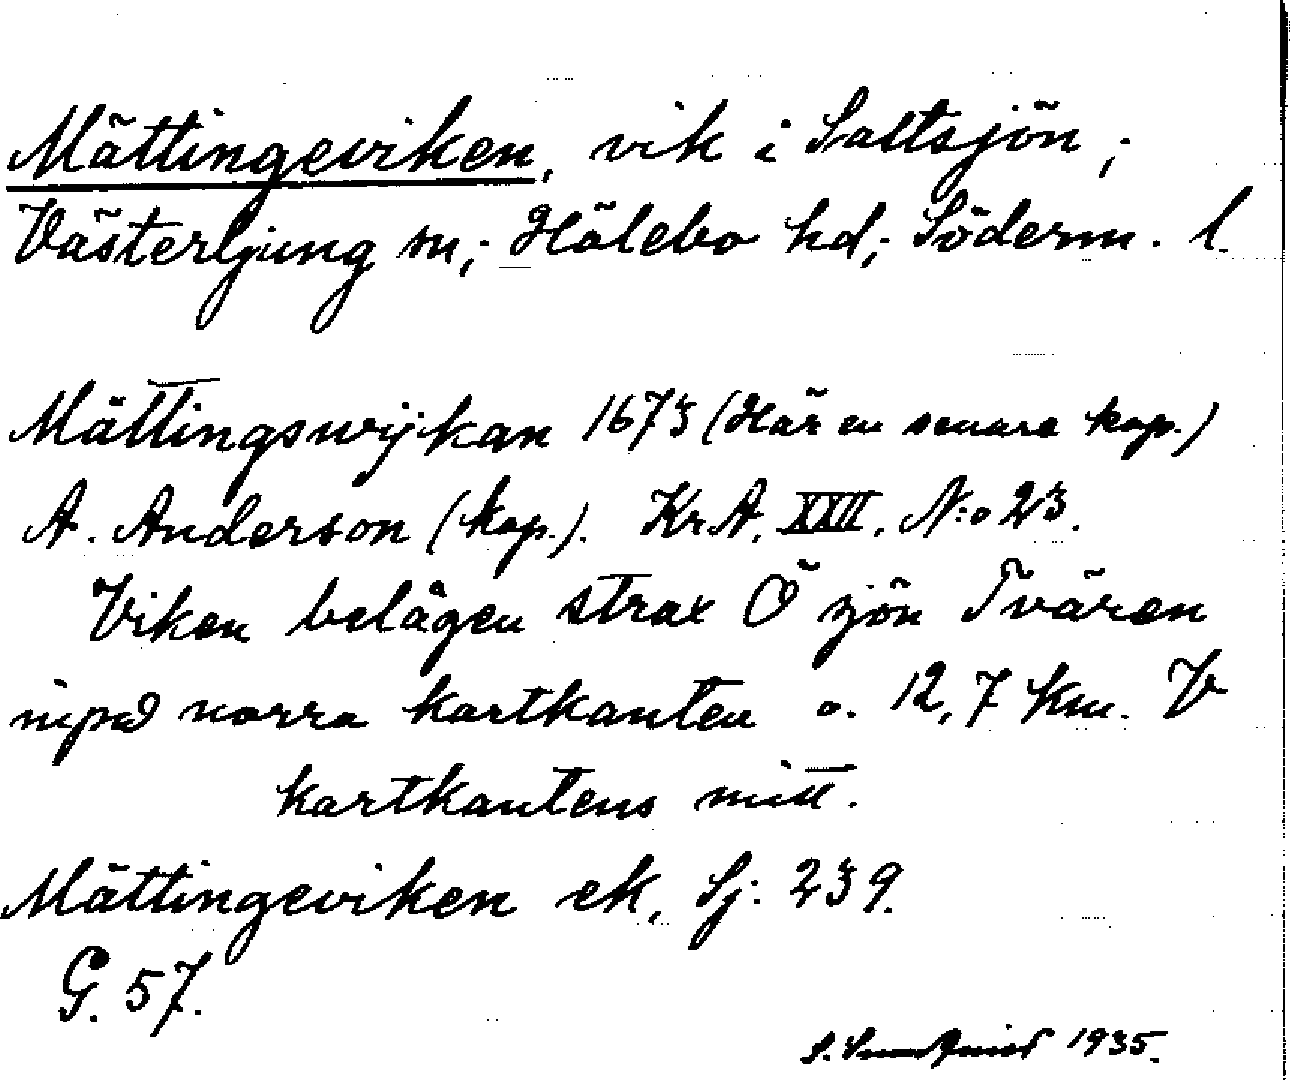 Mättingeviken, vik i Saltsjön,
Västerljung sn, Hölebo hd, Söderm. l.
Mättingswijkan 1673 (Här en senare kop.)
A. Anderson (kop.). Kr.A. XXII. N:o 23.
Viken belägen strax Ö sjön Tvären
inpå norra kartkanten o. 12,7 km. V
kartkantens mitt.
Mättingeviken ek, Sj: 239.
G. 57.
S. 1935.